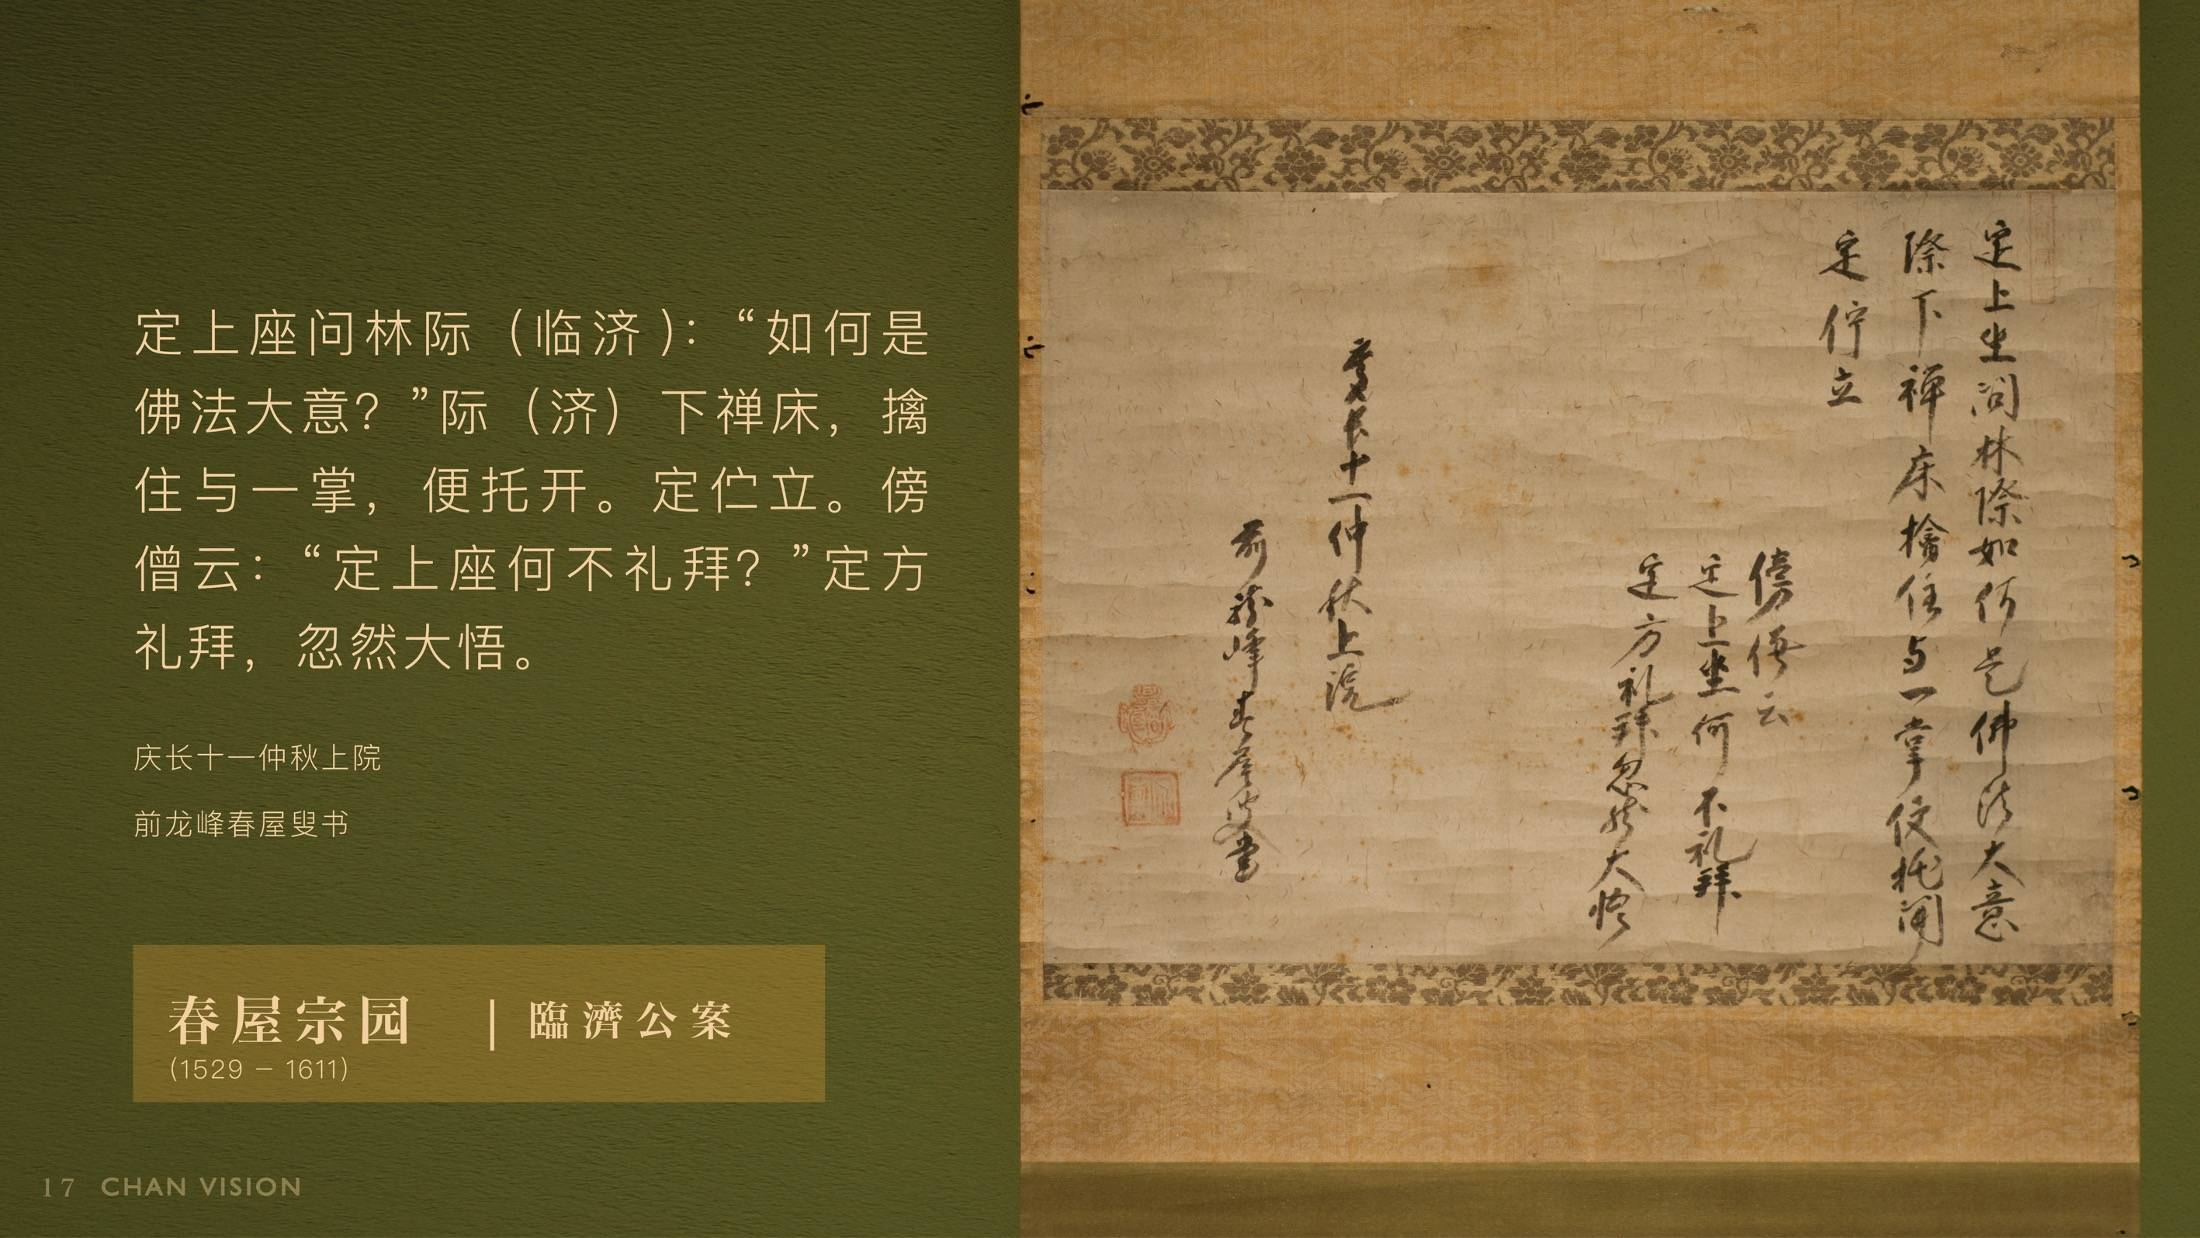 定上座问林际（临济）：“如何是
佛法大意？”际（济）下禅床，擒
住与一掌，便托开。定伫立。傍
僧云：“定上座何不礼拜？”定方
礼拜，忽然大悟。
庆长十一仲秋上院
前龙峰春屋叟书
春屋宗园 | 臨濟公案
(1529 – 1611)
17 CHAN VISION
定上坐問林際如何是佛法大意
際下禅床擒住与一掌便托開
定佇立
傍僧云
定上坐何不礼拜
定方礼拜忽然大悟
慶長十一仲秋上浣
前龍峰春屋叟書